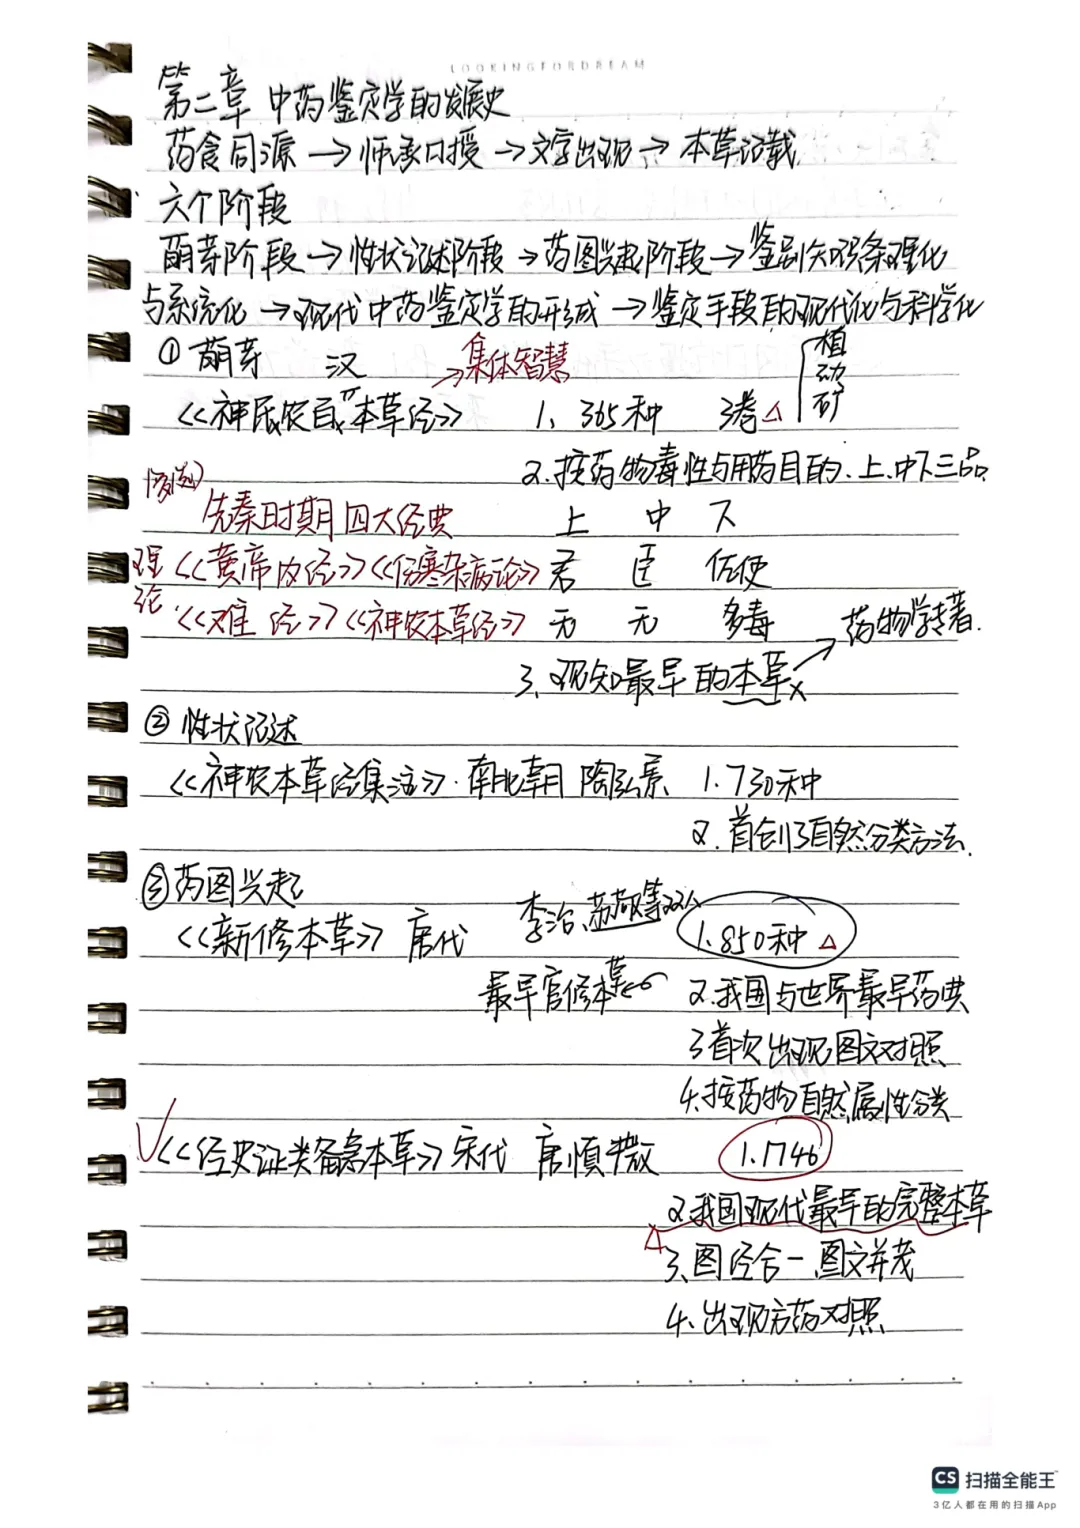 LOOKINGFORDREAM
第二章 中药鉴定学的发展史
药食同源 → 师承口授 → 文字出现 → 本草记载
六个阶段
萌芽阶段 → 性状记述阶段 → 药图兴起阶段 → 鉴别知识条理化
与系统化 → 现代中药鉴定学的形成 → 鉴定手段的现代化与科学化
① 萌芽 汉 → 集体智慧 植
动
《神农本草经》 1、365种 3卷△ 矿
2.按药物毒性与用药目的.上.中下三品
先秦时期四大经典 上 中 下
理 《黄帝内经》《伤寒杂病论》 君 臣 佐使
论. 《难经》《神农本草经》 无 无 多毒 药物学专著.
3、现知最早的本草x
② 性状记述
《神农本草经集注》·南北朝 陶弘景 1.730种
2.首创了自然分类方法.
③药图兴起
《新修本草》 唐代 李治、苏敬等22人 1.850种 △
最早官修本草 2.我国与世界最早药典
3首次出现图文对照
4.按药物自然属性分类
√《经史证类备急本草》宋代 唐慎微 1.1746
2.我国现代最早的完整本草
△ 3、图经合一、图文并茂
4、出现方药对照
CS 扫描全能王
3亿人都在用的扫描App